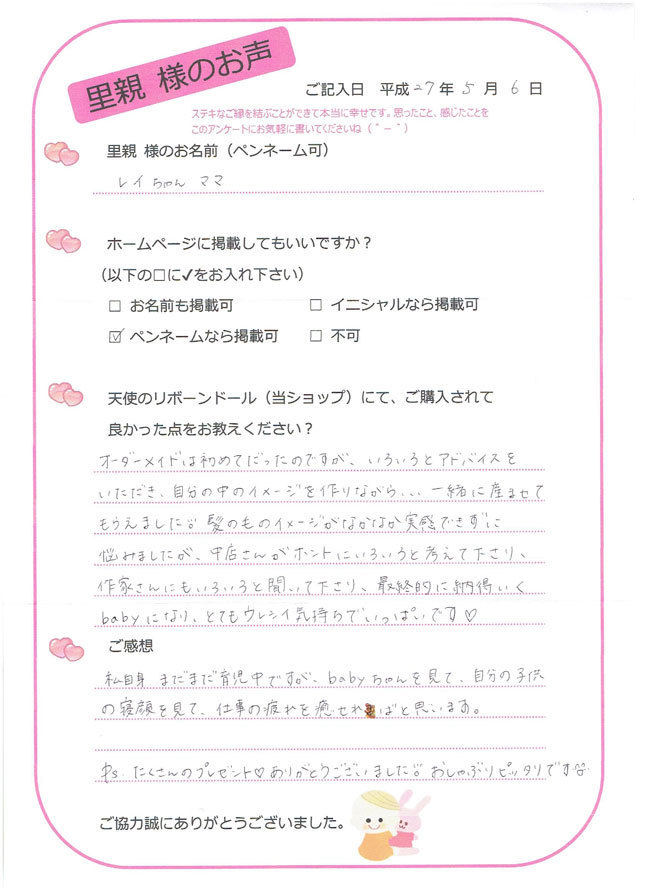 里親 様のお声
ご記入日 平成27年5月6日
ステキなご縁を結ぶことができて本当に幸せです。思ったこと、感じたことを
このアンケートにお気軽に書いてくださいね（＾－＾）
里親 様のお名前（ペンネーム可）
レイちゃん ママ
ホームページに掲載してもいいですか？
（以下の□に✓をお入れ下さい）
□ お名前も掲載可 □ イニシャルなら掲載可
☑ ペンネームなら掲載可 □ 不可
天使のリボーンドール（当ショップ）にて、ご購入されて
良かった点をお教えください？
オーダーメイドは初めてだったのですが、いろいろとアドバイスを
いただき、自分の中のイメージを作りながら... 一緒に産ませて
もらえました 髪のものイメージがなかなか実感できずに
悩みましたが、店さんがホントにいろいろと考えて下さり、
作家さんにもいろいろと聞いて下さり、最終的に納得いく
babyになり、とてもウレシイ気持ちでいっぱいです♡
ご感想
私自身 まだまだ育児中ですが、babyちゃんを見て、自分の子供
の寝顔を見て、仕事の疲れを癒せればと思います。
Ps. たくさんのプレゼント♡ありがとうございました おしゃぶりピッタリです
ご協力誠にありがとうございました。